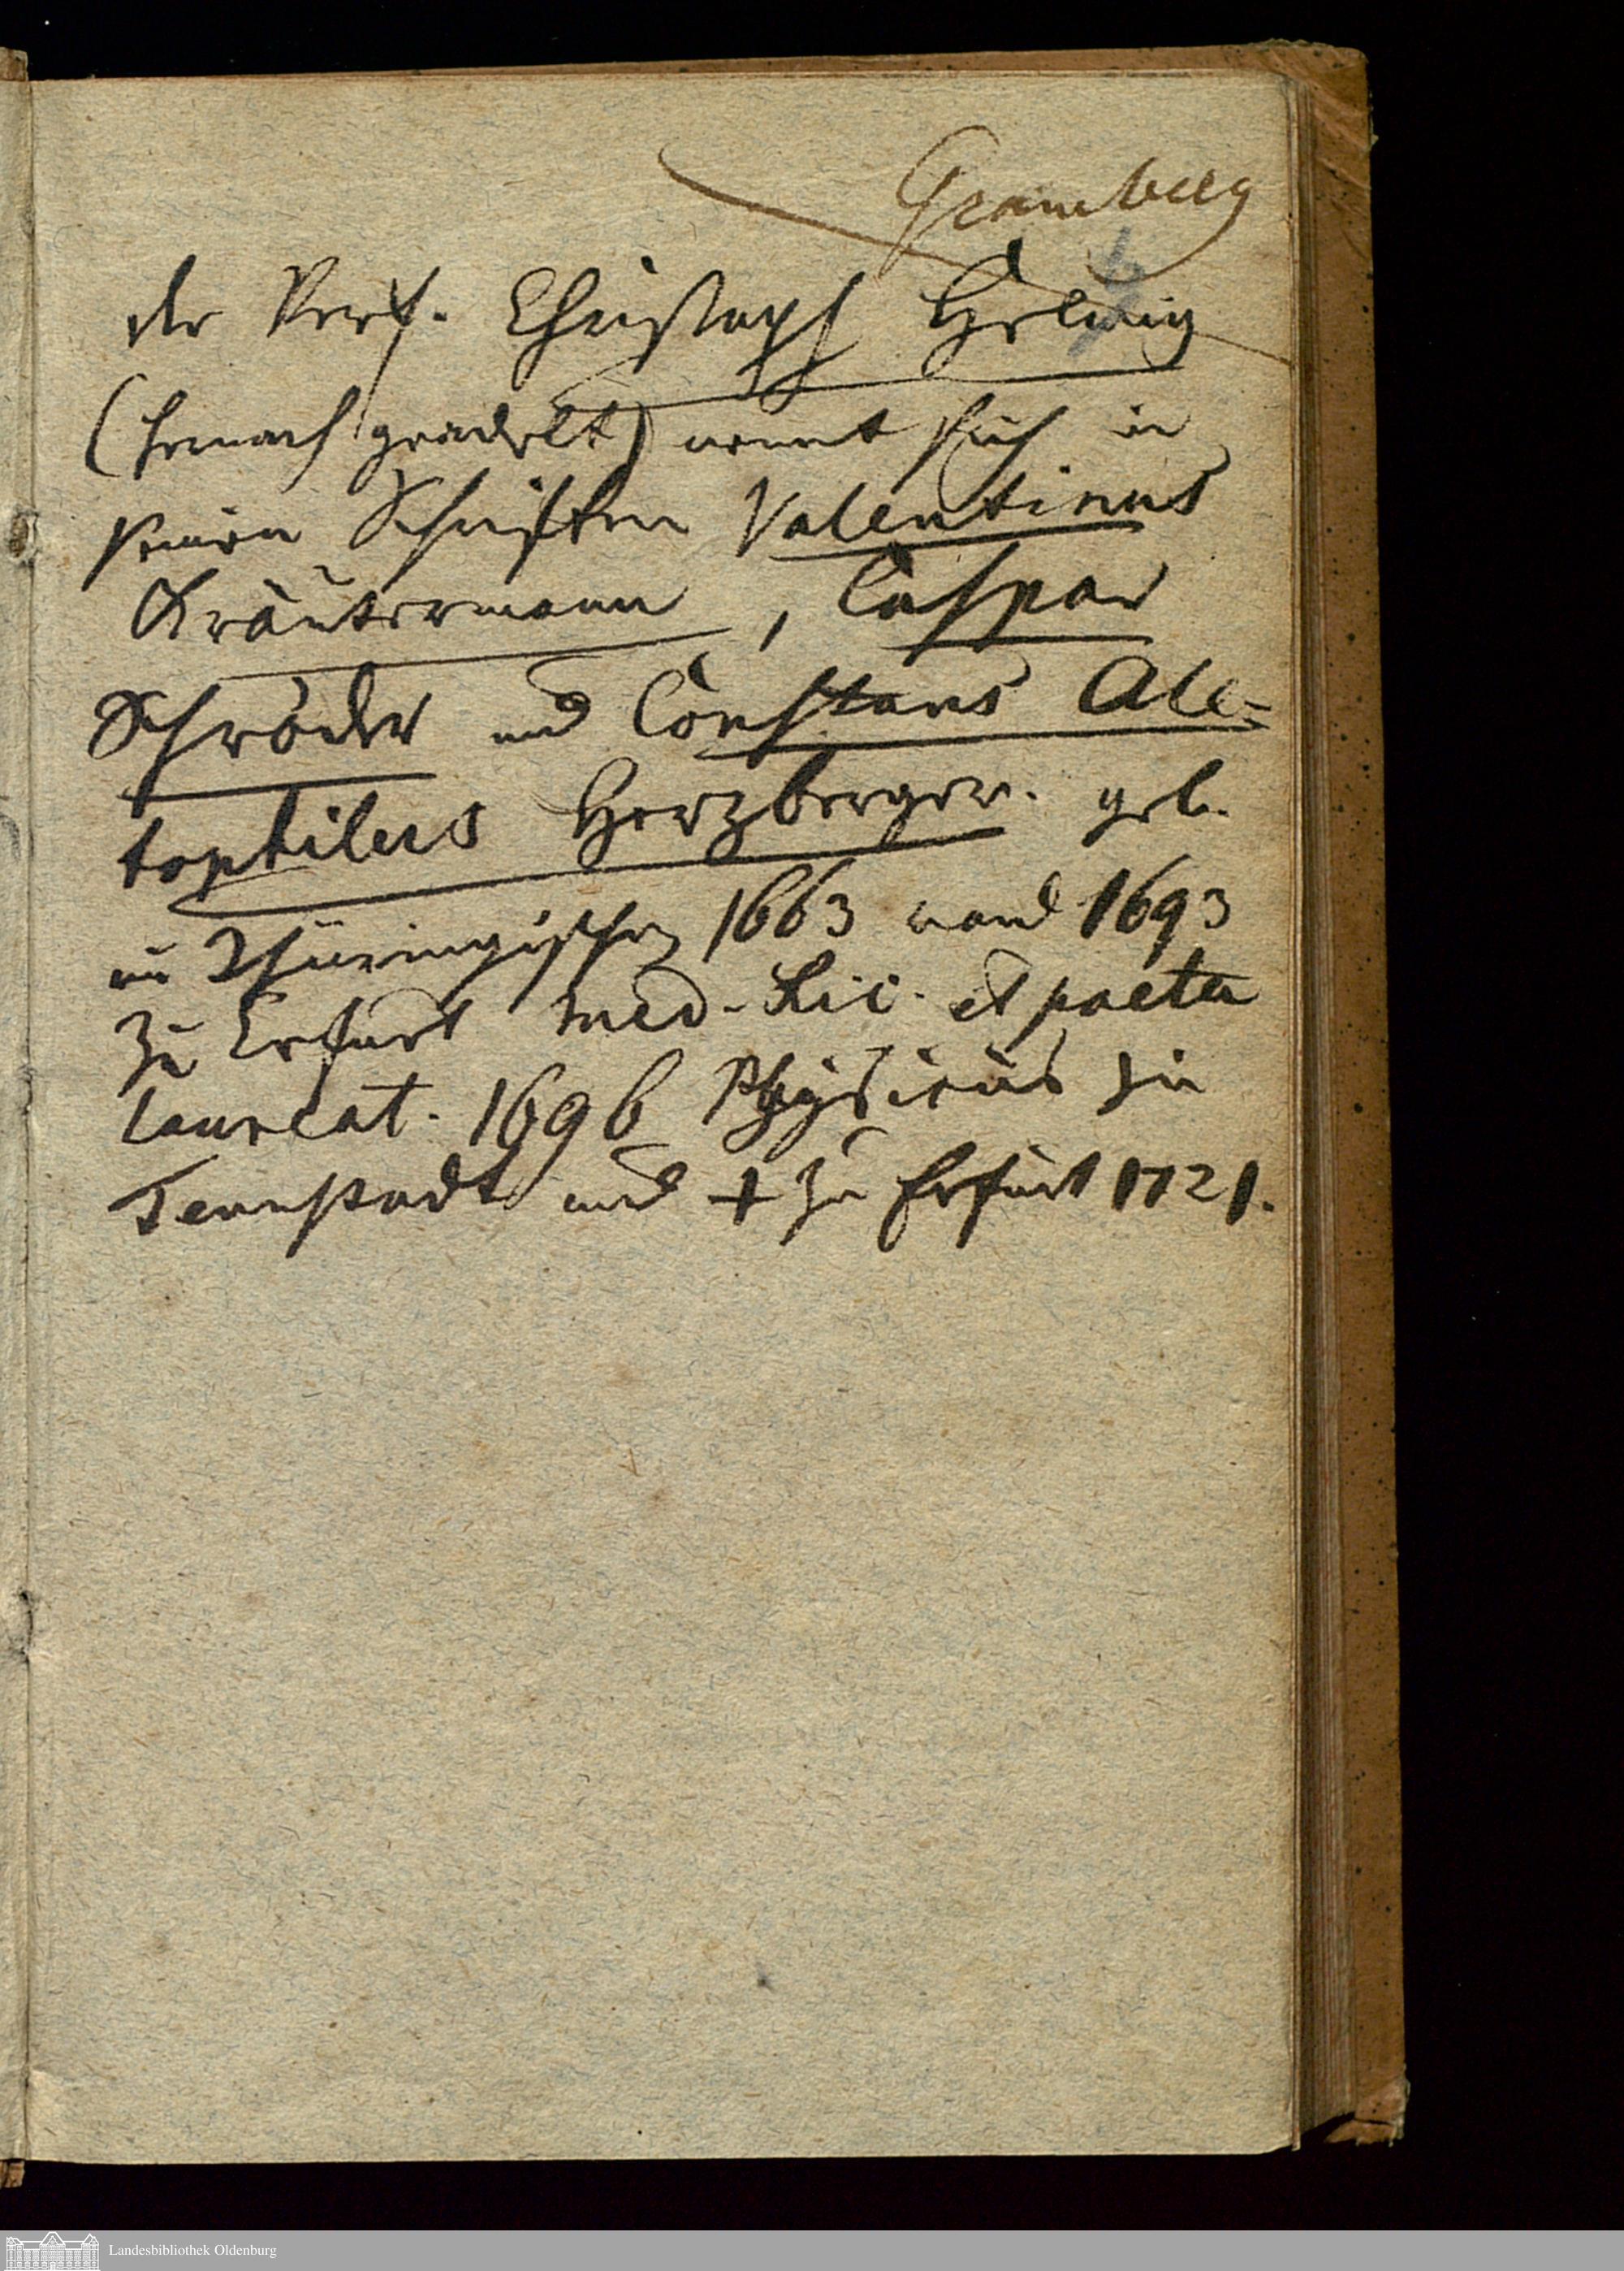 Gramberg
der Verf. Christoph Helwig
(hernach geadelt) nennt sich in
seinen Schriften Valentinus
Kräutermann, Caspar
Schröder und Constans Ale-
tophilus Herzberger. geb.
im Thüringischen 1663 ward 1693
zu Erfurt Med. Lic. et poeta
laureat. 1696 Physicus zu
Tennstadt und + zu Erfurt 1721.
Landesbibliothek Oldenburg